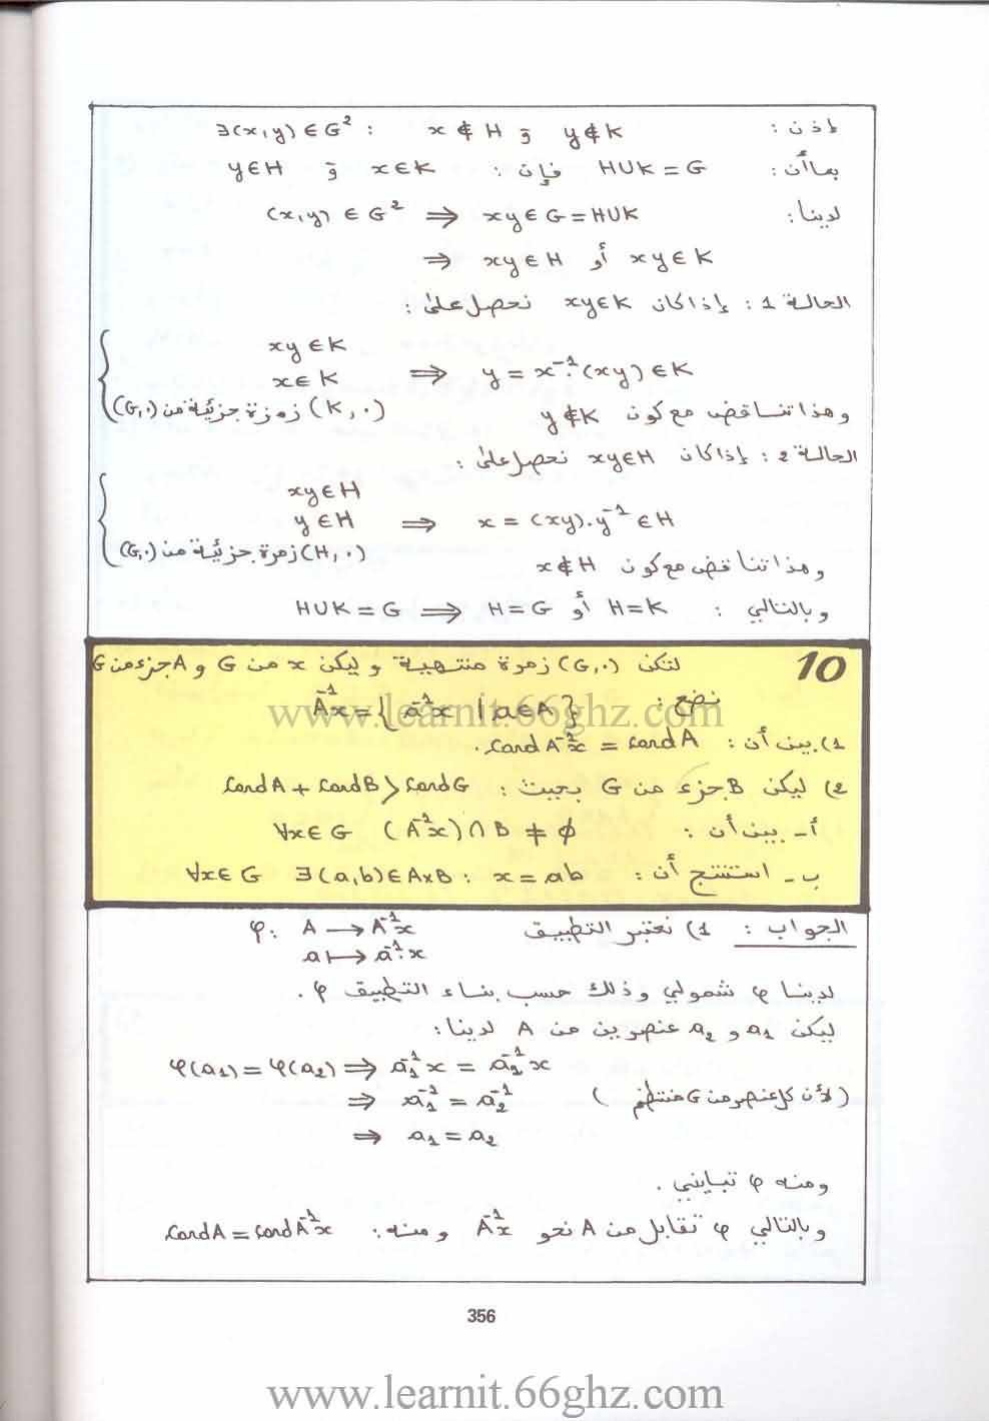 إذن : ∃(x,y) ∈ G² : x ∉ H و y ∉ K
بما أن : H∪K = G فإن : x∈K و y∈H
لدينا : (x,y) ∈ G² ⇒ xy ∈ G = H∪K
⇒ xy ∈ H أو xy ∈ K
الحالة 1 : إذا كان xy∈K نحصل على :
xy ∈ K
x ∈ K ⇒ y = x⁻¹.(xy) ∈ K
(K, .) زمرة جزئية من (G,.)
وهذا تناقض مع كون y ∉ K
الحالة 2 : إذا كان xy∈H نحصل على :
xy ∈ H
y ∈ H ⇒ x = (xy).y⁻¹ ∈ H
(H, .) زمرة جزئية من (G,.)
وهذا تناقض مع كون x ∉ H
وبالتالي : H∪K = G ⇒ H = G أو H = K
10 لتكن (G,.) زمرة منتهية و ليكن x من G و A جزء من G
نضع : A⁻¹x = { a⁻¹x | a∈A }
www.learnit.66ghz.com
1) بين أن : Card A⁻¹x = Card A .
2) ليكن B جزء من G بحيث : Card A + Card B > Card G
أ - بين أن : ∀x∈G (A⁻¹x) ∩ B ≠ ϕ
ب - استنتج أن : ∀x∈G ∃(a,b)∈A×B : x = ab
الجواب : 1) نعتبر التطبيق φ : A → A⁻¹x
a ↦ a⁻¹.x
لدينا φ شمولي وذلك حسب بناء التطبيق φ .
ليكن a₁ و a₂ عنصرين من A لدينا :
φ(a₁) = φ(a₂) ⇒ a₁⁻¹x = a₂⁻¹x
⇒ a₁⁻¹ = a₂⁻¹ ( لأن كل عنصر من G منتظم )
⇒ a₁ = a₂
ومنه φ تبايني .
وبالتالي φ تقابل من A نحو A⁻¹x ومنه : Card A = Card A⁻¹x
356
www.learnit.66ghz.com